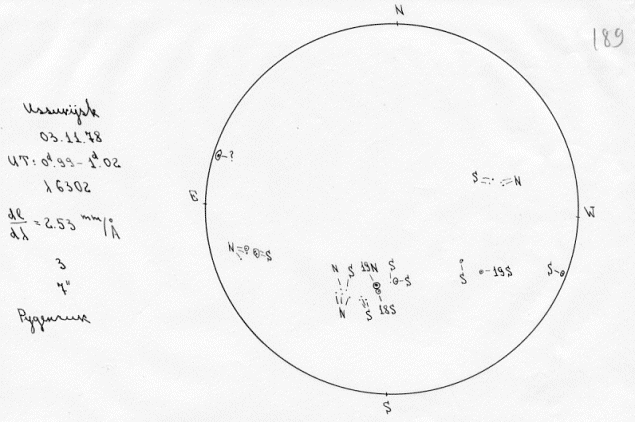 N
189
Ussurijsk
03.11.78
UT: 0ᵈ.99 - 1ᵈ.02
λ 6302
dl/dλ = 2.53 mm/Å
3
7"
E
W
?
S N
N ? S
N S 19N S
S
S
19S
S
N
S 18S
S